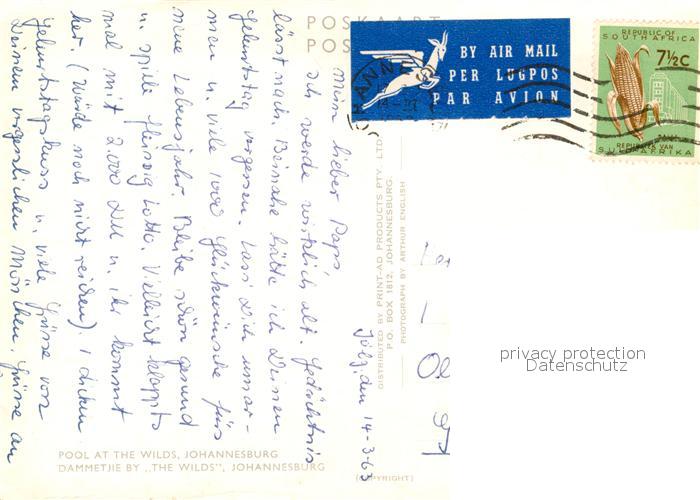 POSKAART
POS
BY AIR MAIL
PER LUGPOS
PAR AVION
REPUBLIC OF
SOUTH AFRICA
7½c
REPUBLIEK VAN
SUID-AFRIKA
Jolz, den 14-3-63
Mein lieber Papi,
ich werde wirklich alt. Gedächtnis
lässt nach. Beinahe hätte ich Deinen
Geburtstag vergessen. Lass Dich umar-
men u. viele 1000 Glückwünsche fürs
neue Lebensjahr. Bleibe schön gesund
u. spiele fleissig Lotto. Vielleicht klappts
mal mit 2000 DM u. ihr kommt
her (würde noch nicht reichen). 1 dicken
Geburtstagskuss u. viele Grüsse von
Deinem vergesslichen Grüsse an
DISTRIBUTED BY PRINT-AD PRODUCTS PTY. LTD.
P.O. BOX 1812, JOHANNESBURG.
PHOTOGRAPH BY ARTHUR ENGLISH
POOL AT THE WILDS, JOHANNESBURG
DAMMETJIE BY „THE WILDS", JOHANNESBURG
(COPYRIGHT)
privacy protection
Datenschutz